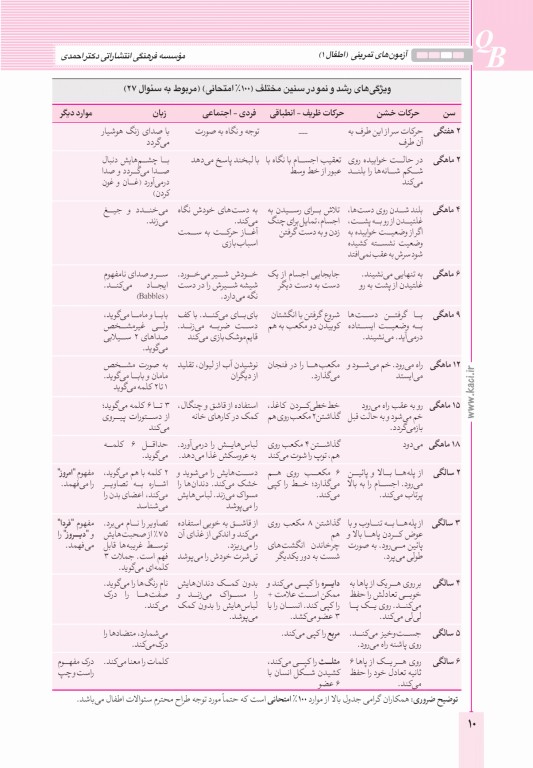 QB
آزمون‌های تمرینی (اطفال ۱)
مؤسسه فرهنگی انتشاراتی دکتراحمدی
ویژگی‌های رشد و نمو در سنین مختلف (۱۰۰٪ امتحانی) (مربوط به سئوال ۲۷)
سن حرکات خشن حرکات ظریف - انطباقی فردی - اجتماعی زبان موارد دیگر
۲ هفتگی حرکات سر از این طرف به — توجه و نگاه به صورت با صدای زنگ هوشیار
آن طرف می‌گردد
۲ ماهگی در حالت خوابیده روی تعقیب اجسام با نگاه با با لبخند پاسخ می‌دهد با چشم‌هایش دنبال
شکم شانه‌ها را بلند عبور از خط وسط صدا می‌گردد و صدا
می‌کند درمی‌آورد (غان و غون
کردن)
۴ ماهگی بلند شدن روی دست‌ها، تلاش برای رسیدن به به دست‌های خودش نگاه می‌خندد و جیغ
غلتیدن از رو به پشت، اجسام، تمایل برای چنگ می‌کند. می‌زند.
اگر از وضعیت خوابیده به زدن و به دست گرفتن آغاز حرکت به سمت
وضعیت نشسته کشیده اسباب‌بازی
شود سرش به عقب نمی‌افتد
۶ ماهگی به تنهایی می‌نشیند. جابجایی اجسام از یک خودش شیر می‌خورد. سر و صدای نامفهوم
غلتیدن از پشت به رو دست به دست دیگر شیشه شیرش را در دست ایجاد می‌کند.
نگه می‌دارد. (Babbles)
۹ ماهگی با گرفتن دست‌ها شروع گرفتن با انگشتان بای‌بای می‌کند. با کف بابا و ماما می‌گوید،
به وضعیت ایستاده کوبیدن دو مکعب به هم دست ضربه می‌زند. ولی غیرمشخص
درمی‌آید. می‌نشیند. قایم‌موشک‌بازی می‌کند صداهای ۲ سیلابی
می‌گوید.
۱۲ ماهگی راه می‌رود. خم می‌شود و مکعب‌ها را در فنجان نوشیدن آب از لیوان، تقلید به صورت مشخص
می‌ایستد می‌گذارد. از دیگران مامان و بابا می‌گوید.
۱ تا ۲ کلمه می‌گوید
۱۵ ماهگی رو به عقب راه می‌رود خط‌خطی‌کردن کاغذ، استفاده از قاشق و چنگال، ۳ تا ۶ کلمه می‌گوید؛
خم می‌شود و به حالت قبل گذاشتن ۲ مکعب روی هم کمک در کارهای خانه از دستورات پیروی
بازمی‌گردد. می‌کند
۱۸ ماهگی می‌دود گذاشتن ۴ مکعب روی لباس‌هایش را درمی‌آورد. حداقل ۶ کلمه
هم، توپ را شوت می‌کند به عروسکش غذا می‌دهد. می‌گوید.
۲ سالگی از پله‌ها بالا و پائین ۶ مکعب روی هم دست‌هایش را می‌شوید و ۲ کلمه با هم می‌گوید، مفهوم "امروز"
می‌رود. اجسام را به بالا می‌گذارد؛ خط را کپی خشک می‌کند. دندان‌ها را اشاره به تصاویر را می‌فهمد.
پرتاب می‌کند. می‌کند. مسواک می‌زند. لباس‌هایش می‌کند، اعضای بدن را
را می‌پوشد می‌شناسد
۳ سالگی از پله‌ها به تناوب و با گذاشتن ۸ مکعب روی از قاشق به خوبی استفاده تصاویر را نام می‌برد. مفهوم "فردا"
عوض کردن پاها بالا و هم می‌کند و اندکی از غذای آن ۷۵٪ از صحبت‌هایش و "دیروز" را
پائین می‌رود. به صورت چرخاندن انگشت‌های را می‌ریزد. توسط غریبه‌ها قابل می‌فهمد.
طولی می‌پرد. شست به دور یکدیگر تی‌شرت خودش را می‌پوشد فهم است. جملات ۳
کلمه‌ای می‌گوید.
۴ سالگی بر روی هر یک از پاها به دایره را کپی می‌کند و بدون کمک، دندان‌هایش نام رنگ‌ها را می‌گوید.
خوبی تعادلش را حفظ ممکن است علامت + را مسواک می‌زند و صفت‌ها را درک
می‌کند. روی یک پا را کپی کند. انسان را با لباس‌هایش را بدون کمک می‌کند.
لی‌لی می‌کند. ۳ عضو می‌کشد. می‌پوشد.
۵ سالگی جست‌وخیز می‌کند. مربع را کپی می‌کند. می‌شمارد، متضادها را
روی پاشنه راه می‌رود. درک می‌کند.
۶ سالگی روی هر یک از پاها ۶ مثلث را کپی می‌کند، کلمات را معنا می‌کند. درک مفهوم
ثانیه تعادل خود را حفظ کشیدن شکل انسان با راست و چپ
می‌کند. ۶ عضو
توضیح ضروری: همکاران گرامی جدول بالا از موارد ۱۰۰٪ امتحانی است که حتماً مورد توجه طراح محترم سئوالات اطفال می‌باشد.
www.kaci.ir
۱۰